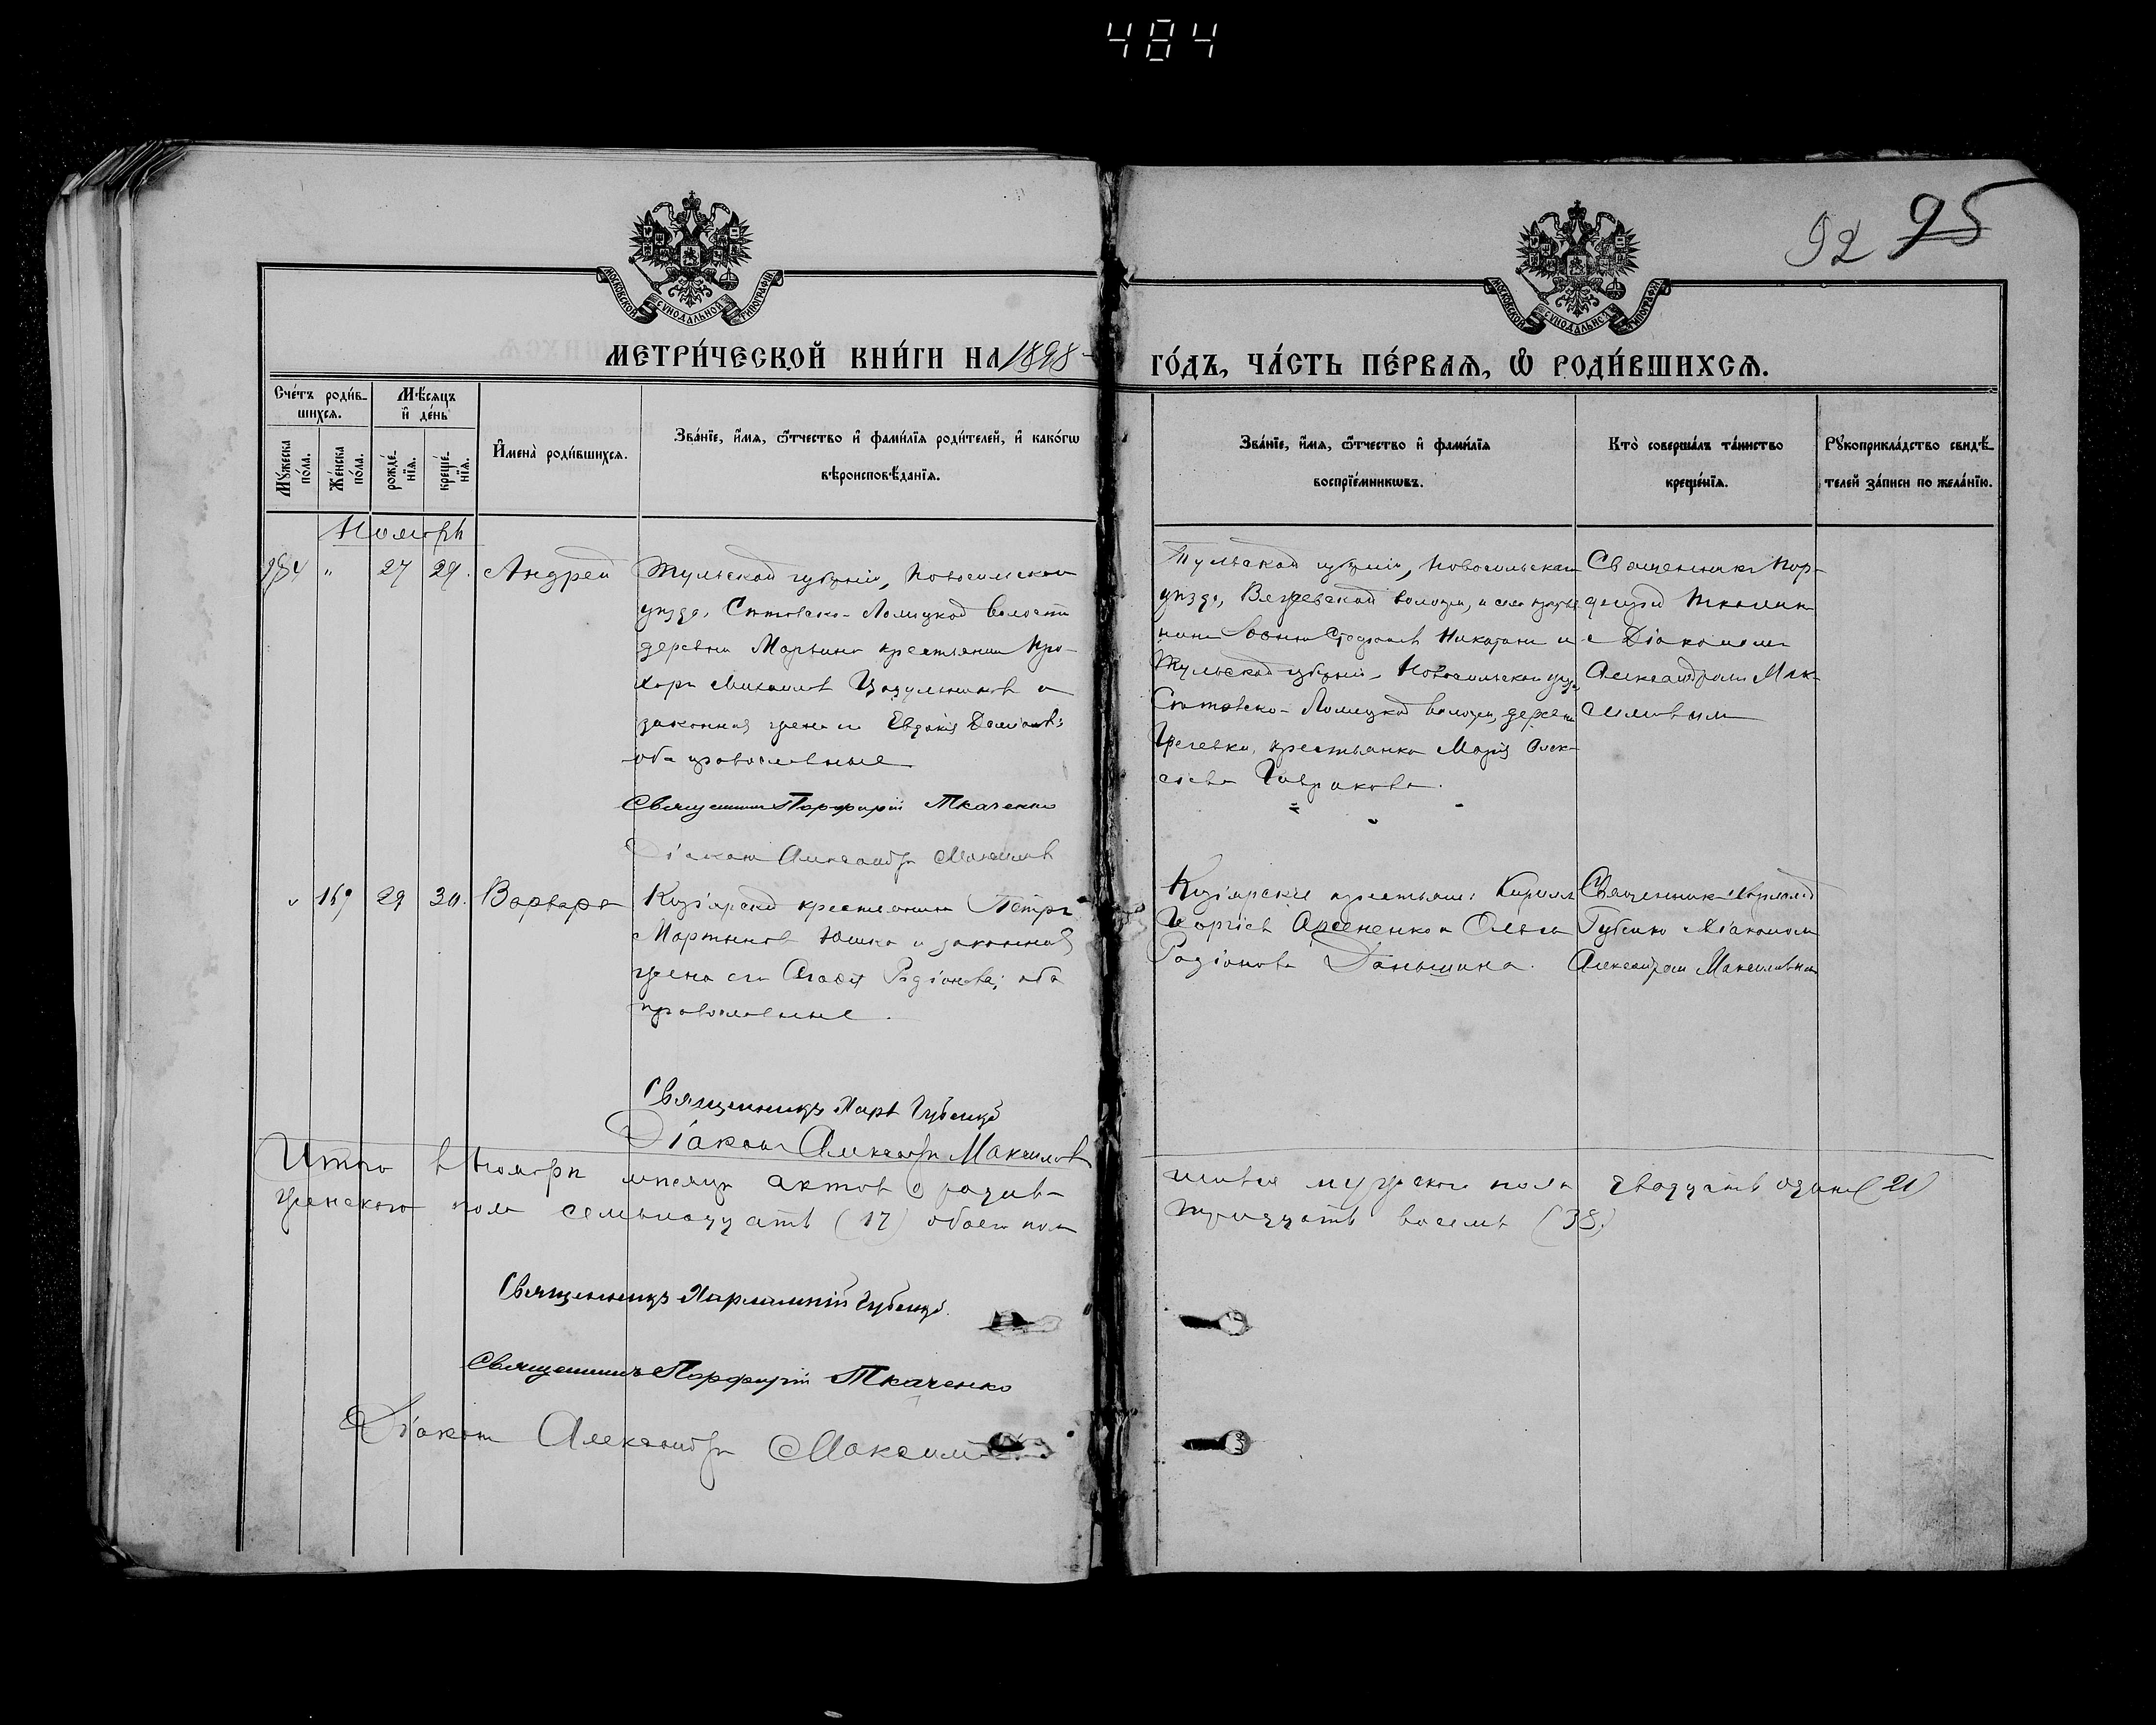 484
92 95
МОСКОВСКОЙ СѴНОДАЛЬНОЙ ТИПОГРАФІИ
МОСКОВСКОЙ СѴНОДАЛЬНОЙ ТИПОГРАФІИ
МЕТРИ́ЧЕСКОЙ КНИ́ГИ НА 1898
ГО́ДЪ, ЧА́СТЬ ПЕ́РВАѦ, Ѡ҆ РОДИ́ВШИХСѦ.
Сче́тъ роди́в-
шихся.
Мꙋ́жеска по́ла.
Же́нска по́ла.
Мѣ́сяцъ и҆ де́нь
рожде́-нїя.
креще́-нїя.
И҆мена̀ роди́вшихся.
Зва́нїе, и҆́мя, ѻ҆́тчество и҆ фами́лїя роди́телей, и҆ како́гѡ
вѣроисповѣ́данїя.
Зва́нїе, и҆́мя, ѻ҆́тчество и҆ фами́лїя
воспрїе́мникѡвъ.
Кто̀ соверша́лъ та́инство
креще́нїя.
Рꙋкоприкла́дство свидѣ́-
телей за́писи по жела́нїю.
Ноябрь
184 " 27 29. Андрей
Тульской губерніи, Новосильскаго
уѣзда, Ломецкой волости
деревни крестьянинъ Про-
хоръ Михаиловъ и
законная жена его Евдокія
оба православные
Священникъ Порфирій Ткаченко
Діаконъ Александръ Максимовъ
Тульской губерніи, Новосильскаго
уѣзда, волости,
и
Тульской губерніи, Новосильскаго уѣзда
Ломецкой волости, деревни
крестьянка Марія Алек-
сѣева
Священникъ Пор-
фирій Ткаченко
с Діакономъ
Александромъ Мак-
симовымъ
" 169 29 30. Варвара
крестьянинъ Петръ
Мартыновъ Юшко и законная
жена его Агафія Родіонова; оба
православные.
Священникъ Харл Губенко
Діаконъ Александръ Максимовъ
крестьяне: Кириллъ
Арсененко и
Родіонова Даньшина.
Священникъ Харлампій
Губенко Діакономъ
Александромъ Максимовымъ
Итого въ Ноябрѣ мѣсяцѣ актовъ о родив-
шихся мужскаго пола двадцать одинъ (21)
женскаго пола семьнадцать (17) обоего пола
тридцать восемь (38)
Священникъ Харлампій Губенко.
Священникъ Порфирій Ткаченко
Діаконъ Александръ Максимовъ